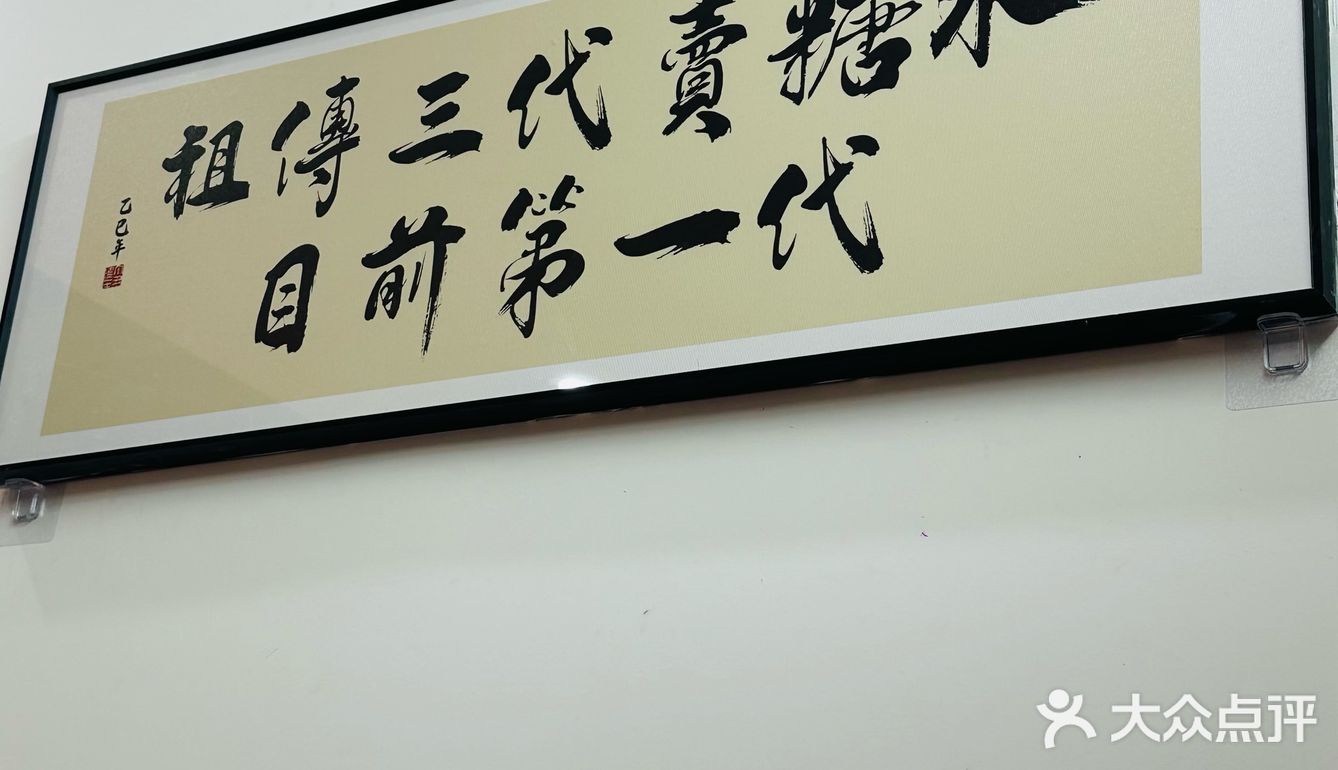 祖傳三代賣糖水
目前第一代
乙巳年
大众点评